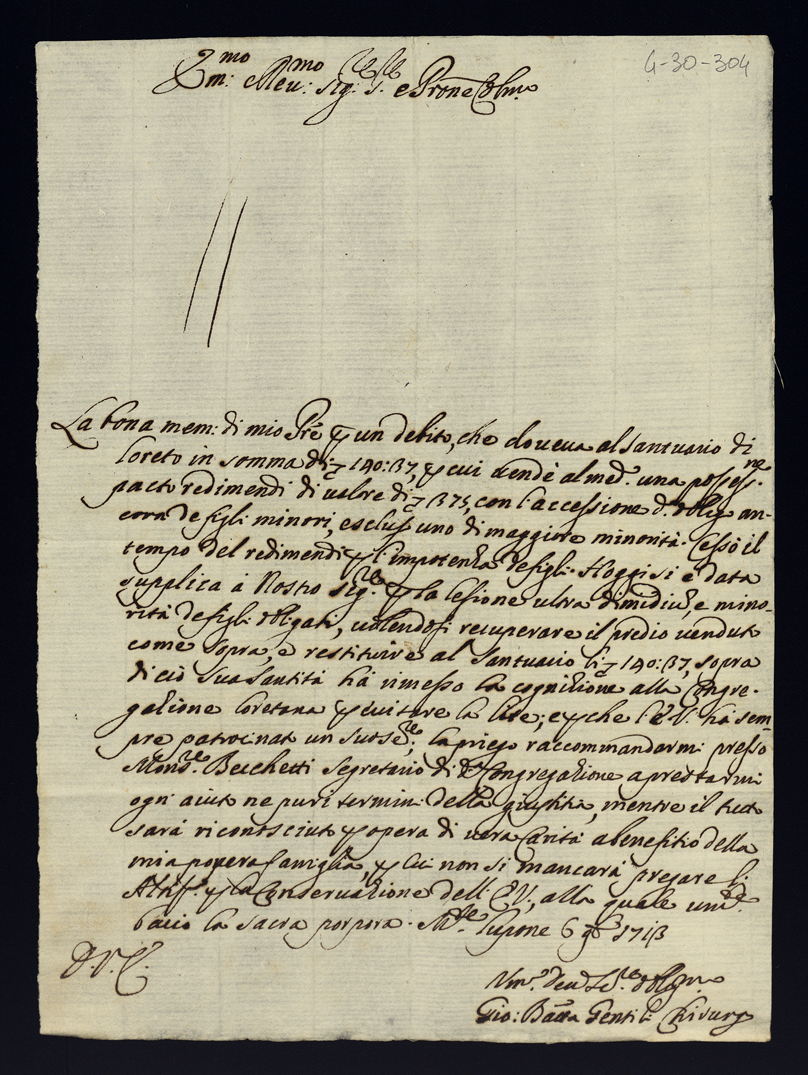 4-30-304
Em:mo e Reu:mo Sig:r e Prone Colmo
La bona mem: di mio Pre p un debito, che doueua al Santuario di
Loreto in somma di 140:37, p cui vendè al med.o una possess.ne
pacto redimendi di ualore di 375, con l'accessione d. oblig an-
cora de figli minori, esclus uno di maggiore minorità. Cessò il
tempo del redimendi p l'impotenza de figli. Hoggi si è data
supplica à Nostro Sig.re p la lesione ultra dimidiũ, e mino-
rità de figli obligati, uolendosi recuperare il predio uenduto
come sopra, e restituire al Santuario li 140:37, sopra
di ciò Sua Santità hà rimesso la cognizione alla Congre-
gazione Loretana p euitare la lite; e p che l'E.V. hà sem-
pre patrocinato un suo se.re, la priego raccommandarmi presso
Mons.re Becchetti Segretario di d.a Congregazione a prestarmi
ogni aiuto ne puri termini della giustitia, mentre il tutto
sarà riconosciuto p opera di uera Carità a benefitio della
mia pouera famiglia, p cui non si mancarà pregare l'
Altiss.o p la Conseruazione dell' E.V., alla quale um.te
bacio la sacra porpora. M.te Lupone 6 9bre 1713
D.V.E.
Um.o deu.o Se.re oblig.mo
Gio: Batta Gentili Chirurgo